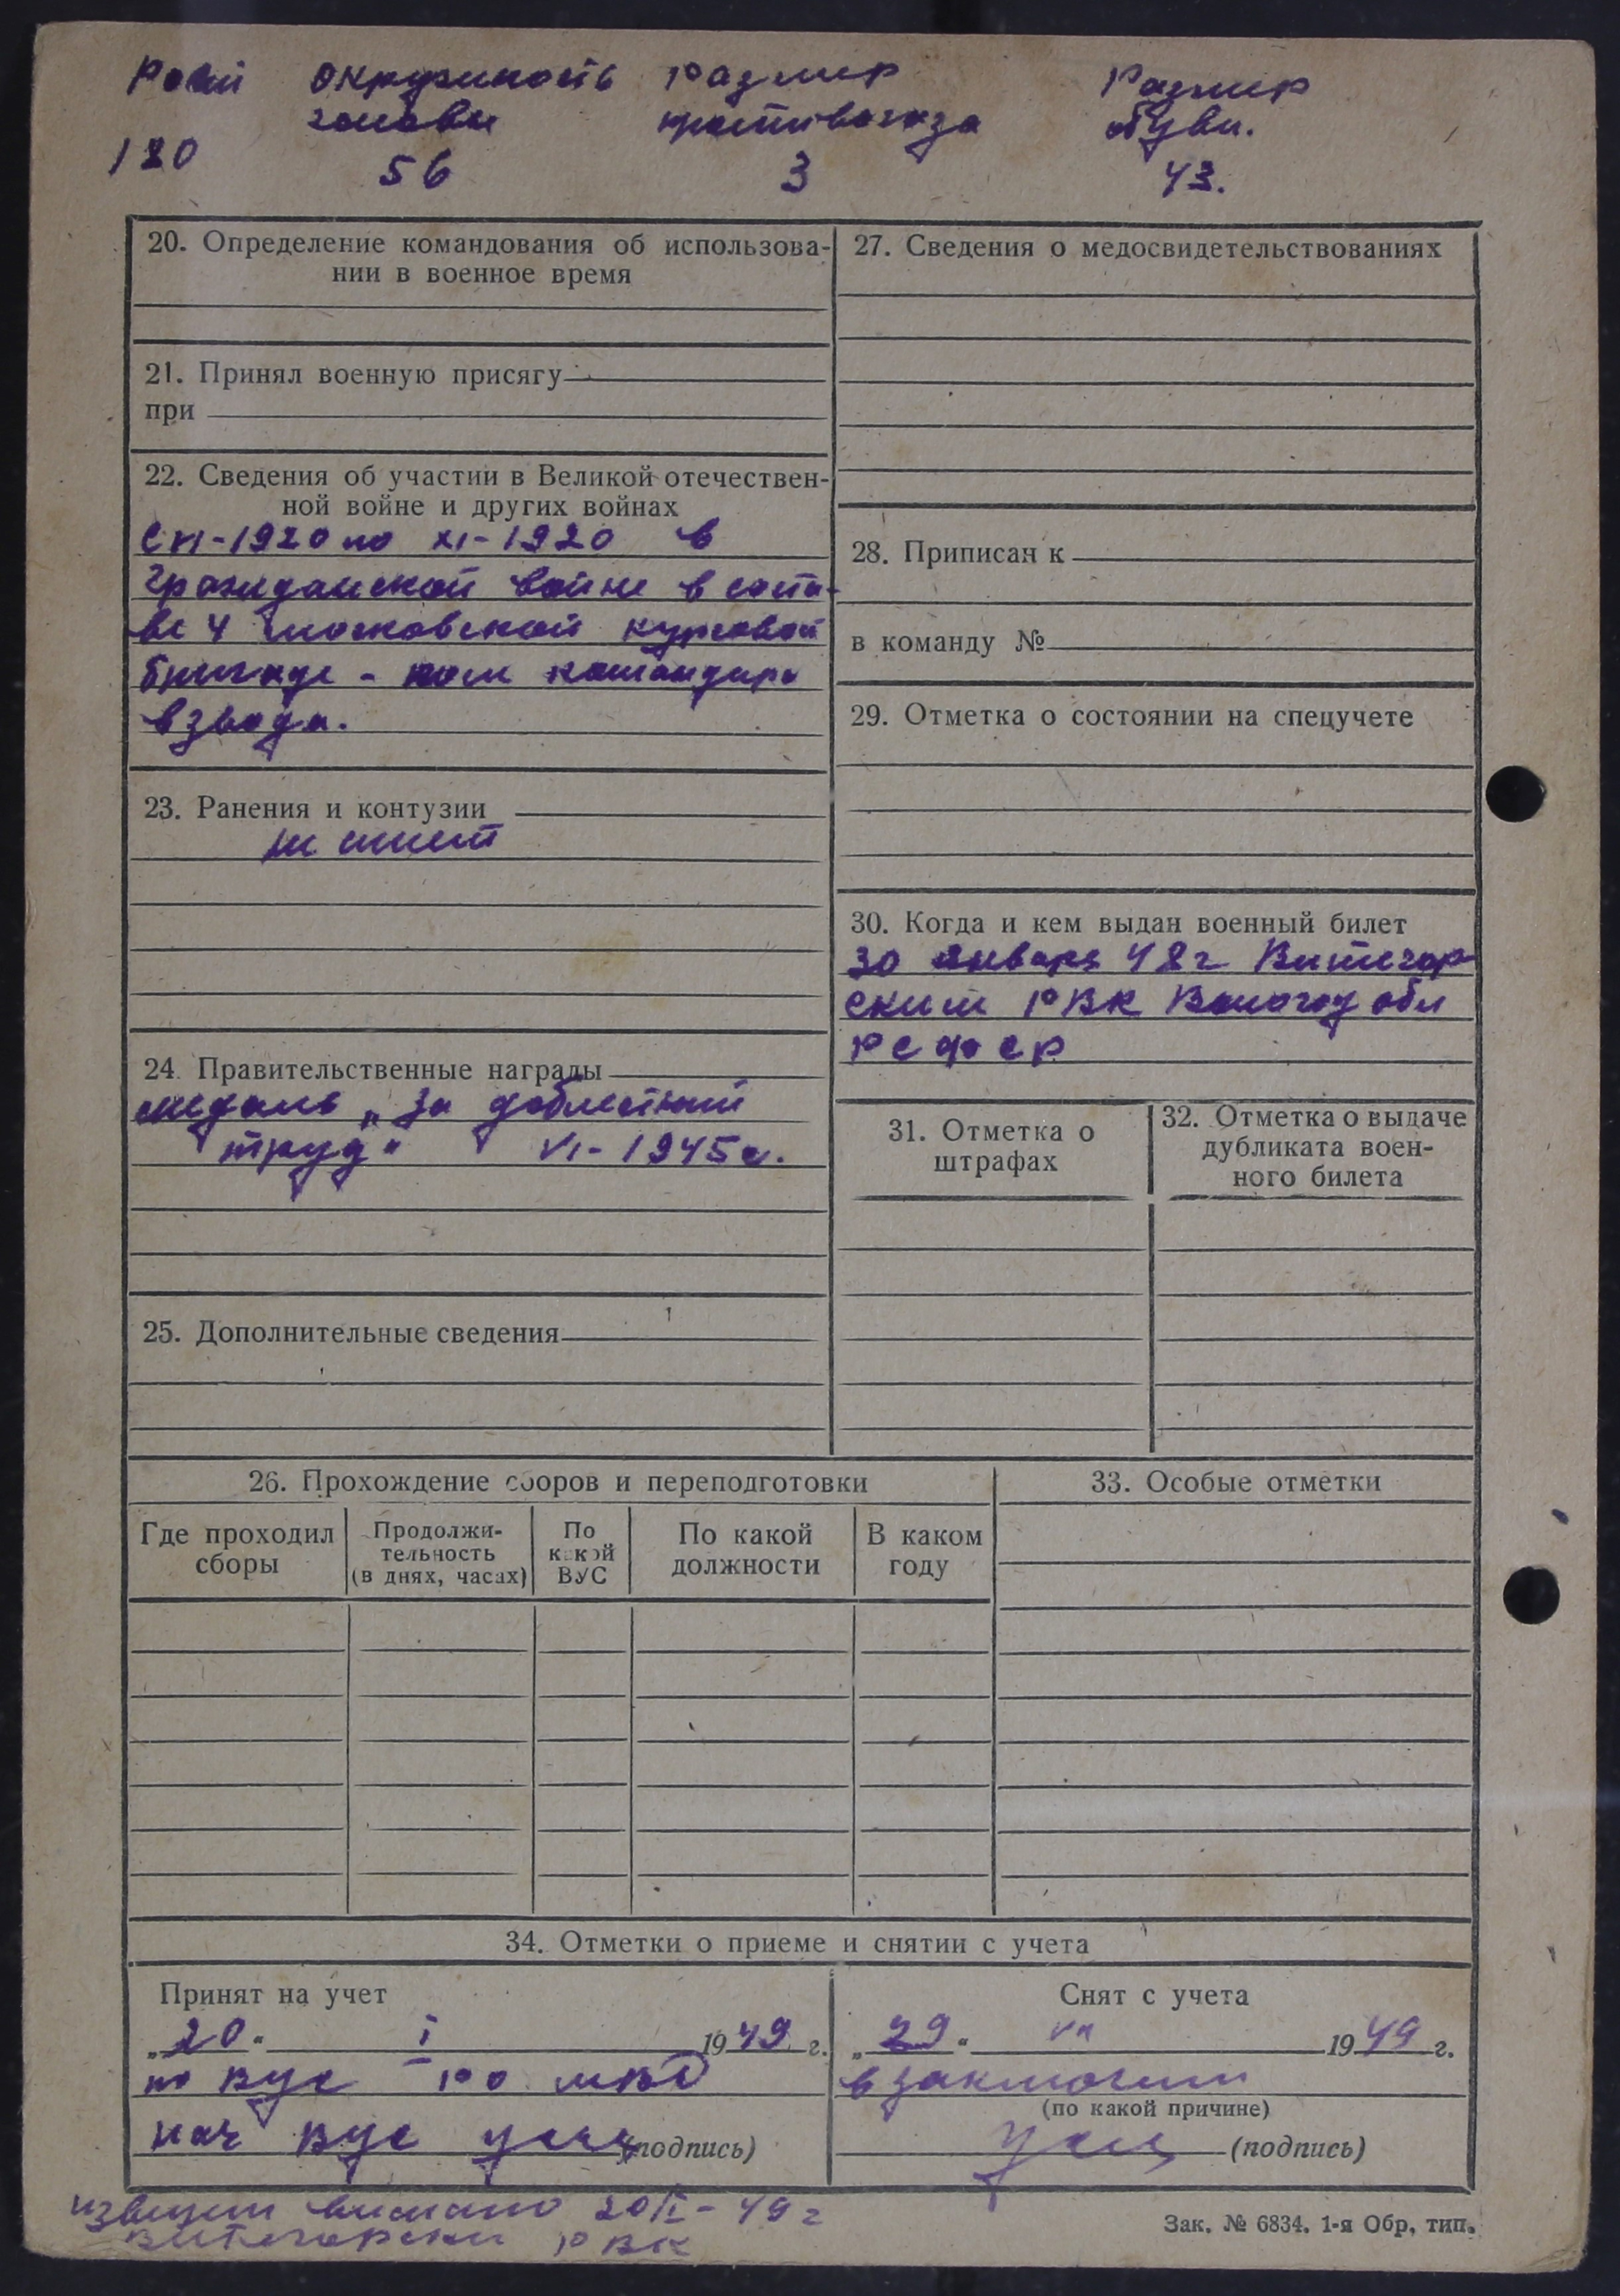 Рост Окружность Размер Размер
головы противогаза обуви.
180 56 3 43.
20. Определение командования об использова-
нии в военное время
21. Принял военную присягу
при
22. Сведения об участии в Великой отечествен-
ной войне и других войнах
С VI-1920 по XI-1920 в
гражданской войне в соста-
ве 4 московской курсовой
бригаде - пом командира
взвода.
23. Ранения и контузии
не имеет
24. Правительственные награды
медаль „За доблестный
труд" VI-1945 г.
25. Дополнительные сведения
27. Сведения о медосвидетельствованиях
28. Приписан к
в команду №
29. Отметка о состоянии на спецучете
30. Когда и кем выдан военный билет
30 января 48 г Витегор
ским РВК Вологод обл
РСФСР
31. Отметка о
штрафах
32. Отметка о выдаче
дубликата воен-
ного билета
26. Прохождение сборов и переподготовки
Где проходил
сборы
Продолжи-
тельность
(в днях, часах)
По
какой
ВУС
По какой
должности
В каком
году
33. Особые отметки
34. Отметки о приеме и снятии с учета
Принят на учет
„20" I 1949 г.
по ВУС РО МВД
нач ВУС (подпись)
Снят с учета
„29" VII 1949 г.
в заключении
(по какой причине)
(подпись)
извещен выслано 20/I-49 г
Витегорский РВК
Зак. № 6834. 1-я Обр. тип.